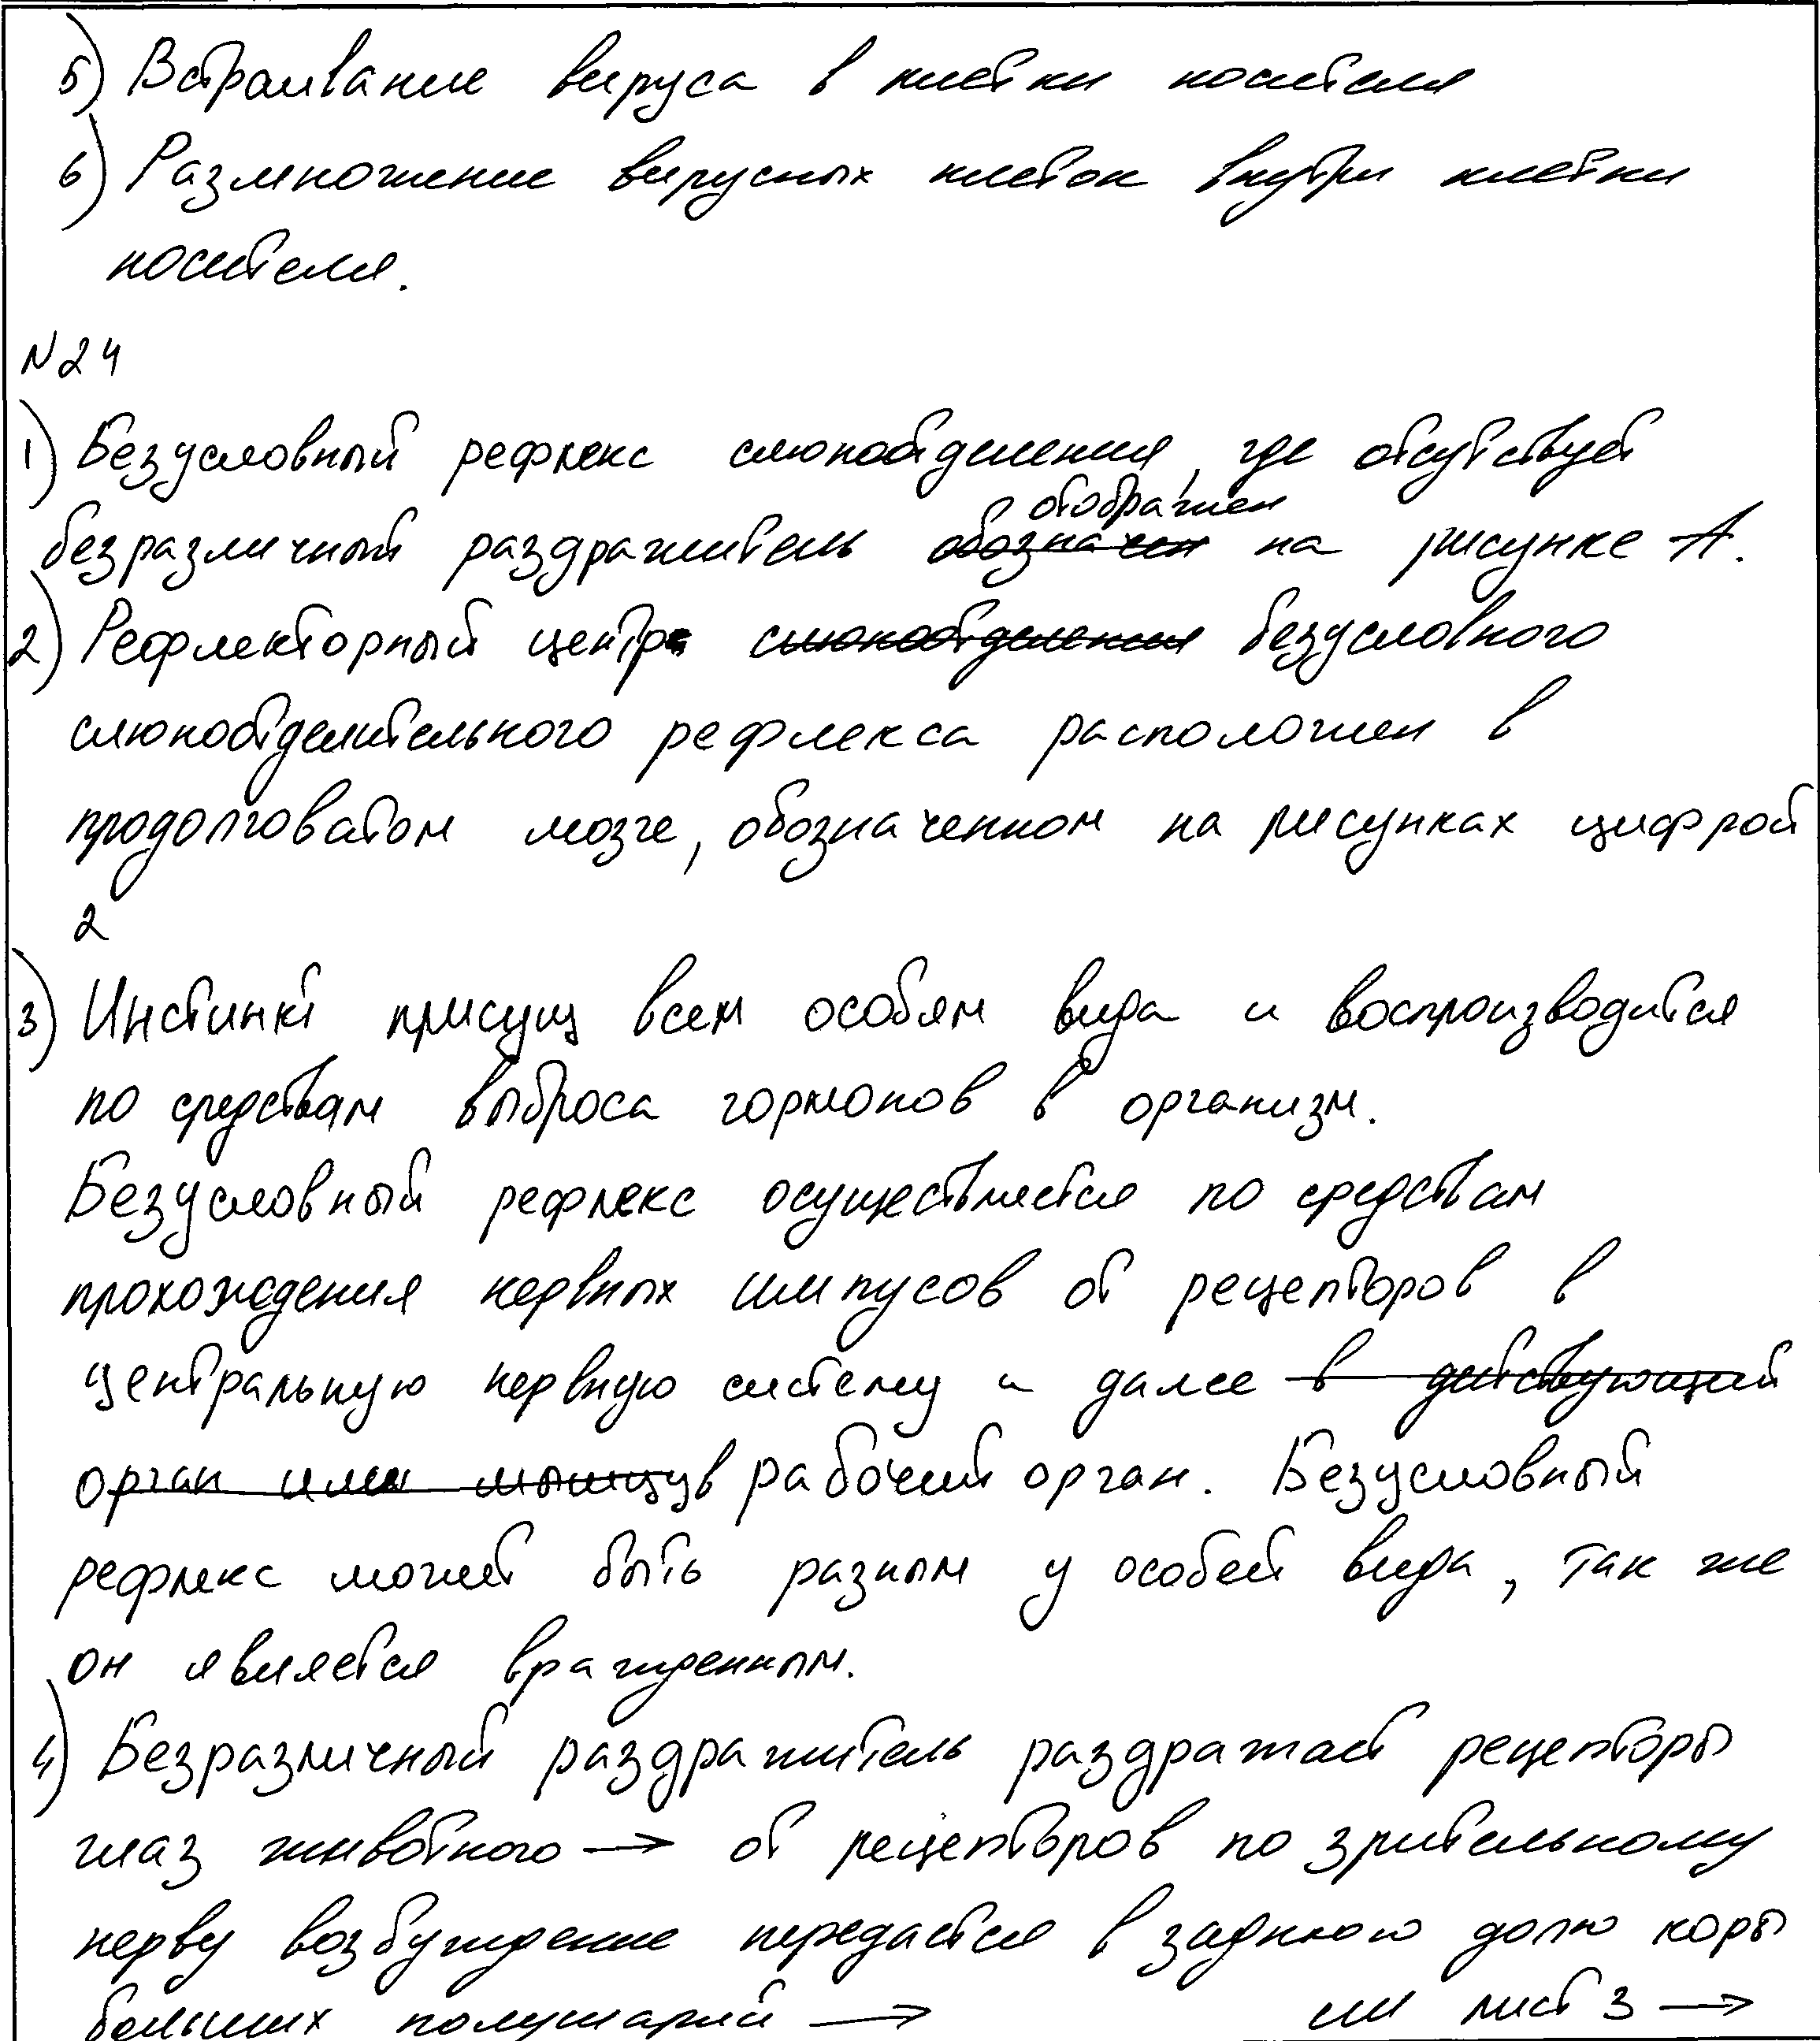 5) Встраивание вируса в клетки носителя
6) Размножение вирусных клеток внутри клетки
носителя.
N24
1) Безусловный рефлекс слюноотделения, где отсутствует
отображен
безразличный раздражитель ~~обозначен~~ на рисунке А.
2) Рефлекторный центр ~~слюноотделения~~ безусловного
слюноотделительного рефлекса расположен в
продолговатом мозге, обозначенном на рисунках цифрой
2
3) Инстинкт присущ всем особям вида и воспроизводится
по средствам выброса гормонов в организм.
Безусловный рефлекс осуществляется по средствам
прохождения нервных импусов от рецепторов в
центральную нервную систему и далее ~~в действующий~~
~~орган или мышцу~~ в рабочий орган. Безусловный
рефлекс может быть разным у особей вида, так же
он является вражденным.
4) Безразличный раздражитель раздражает рецепторы
глаз животного → от рецепторов по зрительному
нерву возбуждение передается в заднюю долю коры
больших полушарий → см лист 3 →